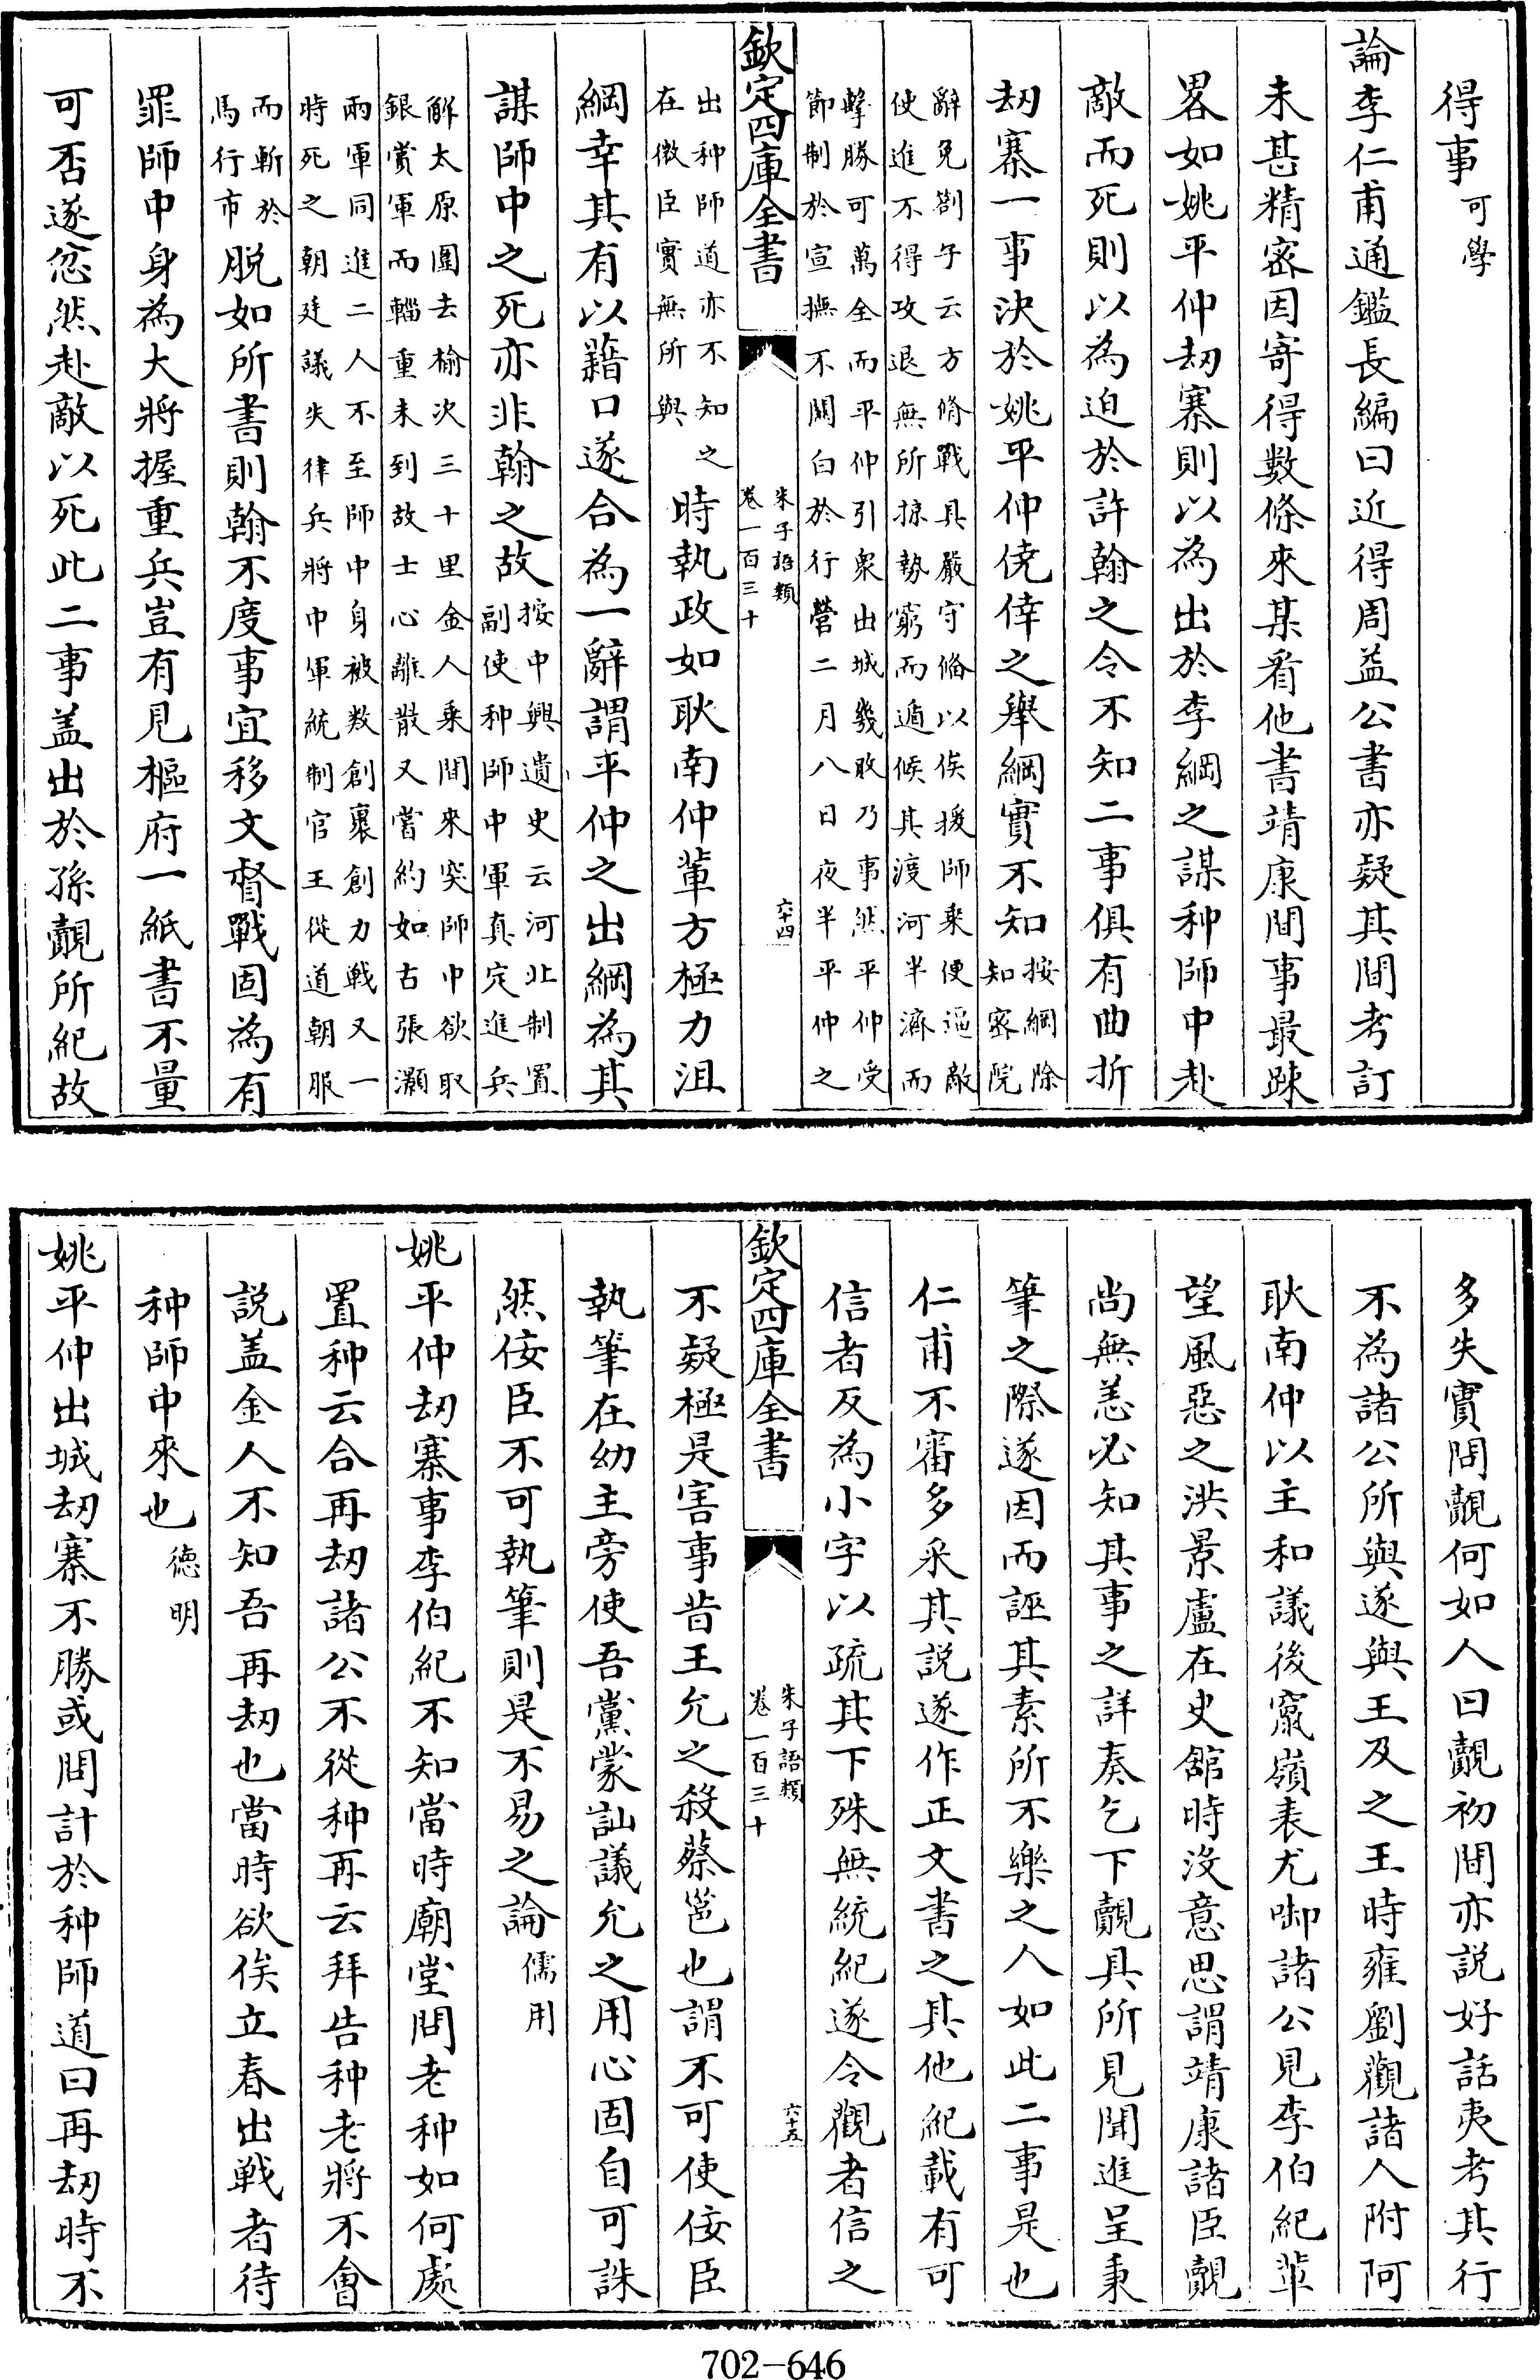 得事可學
論李仁甫通鑑長編曰近得周益公書亦疑其間考訂
未甚精密因寄得數條來某看他書靖康間事最踈
畧如姚平仲刼寨則以為出於李綱之謀种師中赴
敵而死則以為迫於許翰之令不知二事俱有曲折
刼寨一事決於姚平仲僥倖之舉綱實不知按綱除
知密院
辭免劄子云方脩戰具嚴守備以俟援師乘便逼敵
使進不得攻退無所掠勢窮而遁候其渡河半濟而
擊勝可萬全而平仲引衆出城幾敗乃事然平仲受
節制於宣撫不關白於行營二月八日夜半平仲之
欽定四庫全書
朱子語類
卷一百三十
六十四
出种師道亦不知之
在微臣實無所與
時執政如耿南仲輩方極力沮
綱幸其有以藉口遂合為一辭謂平仲之出綱為其
謀師中之死亦非翰之故按中興遺史云河北制置
副使种師中軍真定進兵
解太原圍去榆次三十里金人乘間來突師中欲取
銀賞軍而輜重未到故士心離散又嘗約如古張灝
兩軍同進二人不至師中身被数創裹創力戰又一
時死之朝廷議失律兵將中軍統制官王從道朝服
而斬於
馬行市
脫如所書則翰不度事宜移文督戰固為有
罪師中身為大將握重兵豈有見樞府一紙書不量
可否遂忿然赴敵以死此二事盖出於孫覿所紀故
多失實問覿何如人曰覿初間亦說好話夷考其行
不為諸公所與遂與王及之王時雍劉觀諸人附阿
耿南仲以主和議後竄嶺表尤啣諸公見李伯紀輩
望風惡之洪景盧在史舘時沒意思謂靖康諸臣覿
尚無恙必知其事之詳奏乞下覿具所見聞進呈秉
筆之際遂因而誣其素所不樂之人如此二事是也
仁甫不審多采其說遂作正文書之其他紀載有可
信者反為小字以疏其下殊無統紀遂令觀者信之
欽定四庫全書
朱子語類
卷一百三十
六十五
不疑極是害事昔王允之殺蔡邕也謂不可使佞臣
執筆在幼主旁使吾黨蒙訕議允之用心固自可誅
然佞臣不可執筆則是不易之論儒用
姚平仲刼寨事李伯紀不知當時廟堂問老种如何處
置种云合再刼諸公不從种再云拜告种老將不會
説盖金人不知吾再刼也當時欲俟立春出戰者待
种師中來也德明
姚平仲出城刼寨不勝或問計於种師道曰再刼時不
702-646